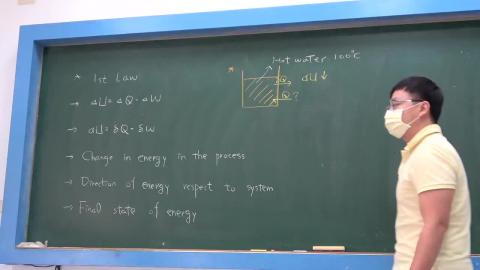 * 1st Law
→ ΔU = ΔQ - ΔW
→ dU = δQ - δW
→ Change in energy in the process
→ Direction of energy respect to system
→ Final state of energy
* Hot water 100°C
Q dU ↓
Q ?